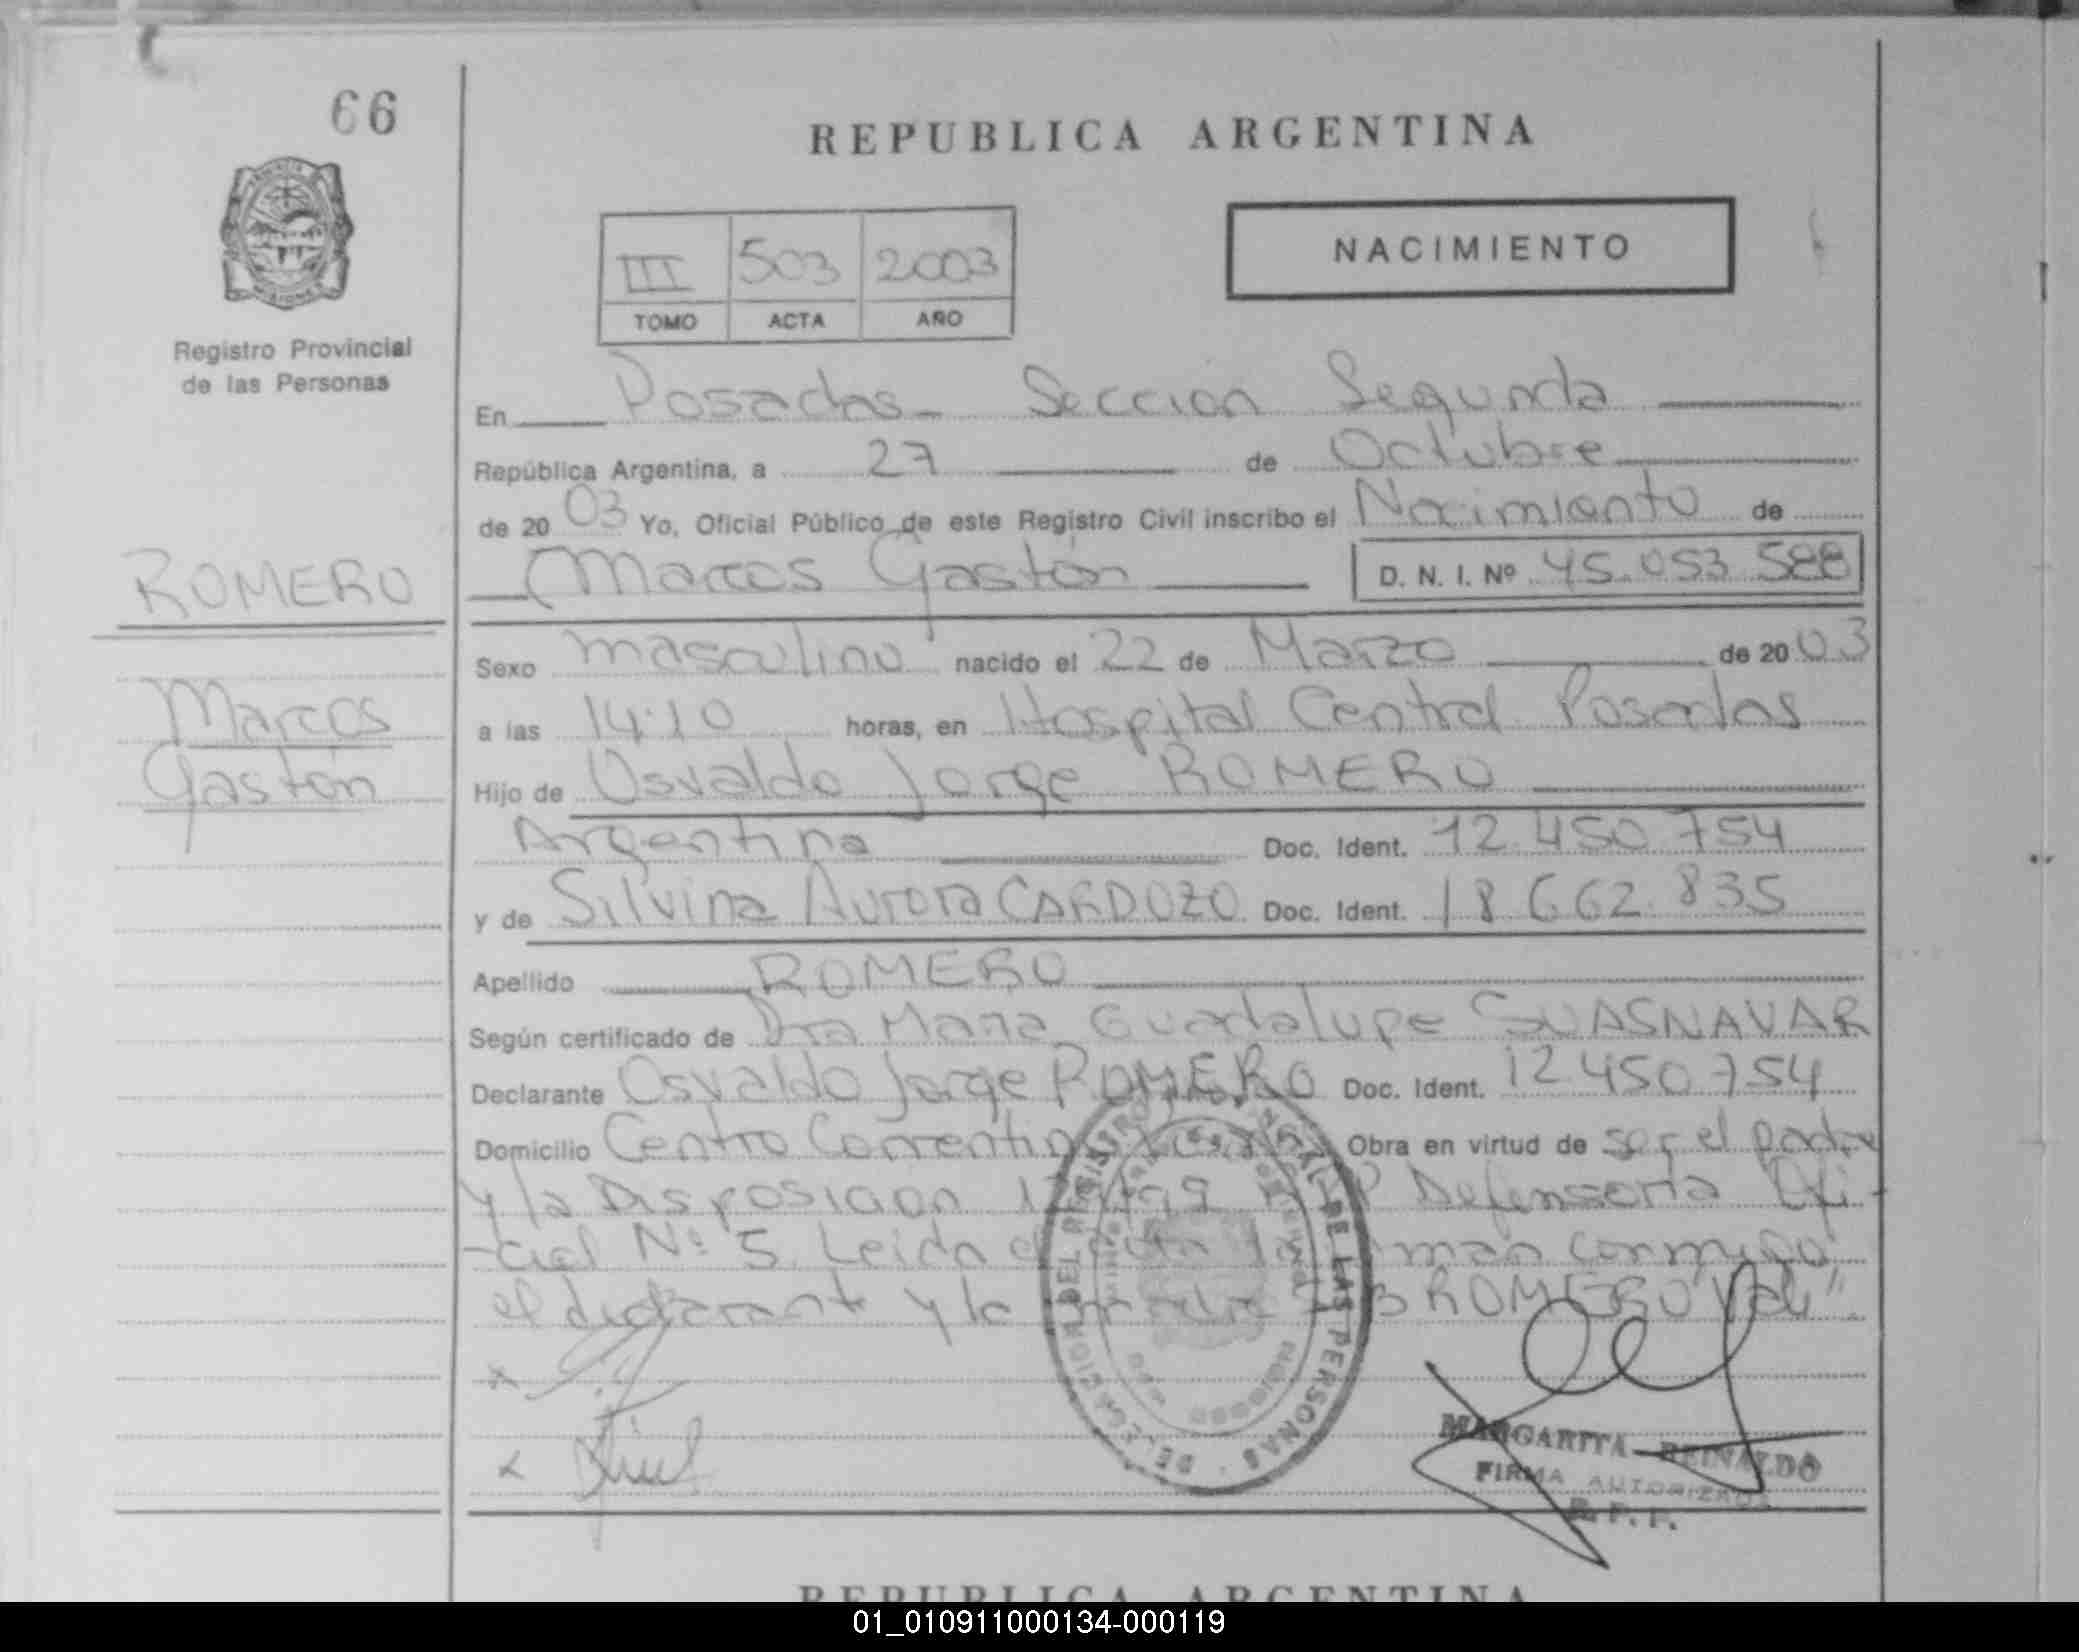 66
REPUBLICA ARGENTINA
NACIMIENTO
III 503 2003
TOMO ACTA AÑO
PROVINCIA
MISIONES
Registro Provincial
de las Personas
En Posadas - Seccion Segunda
República Argentina, a 27 de Octubre
de 20 03 Yo, Oficial Público de este Registro Civil inscribo el Nacimiento de
Marcos Gastón D. N. I. Nº 45.053.588
ROMERO
Marcos
Gastón
Sexo masculino nacido el 22 de Marzo de 20 03
a las 14:10 horas, en Hospital Central Posadas
Hijo de Osvaldo Jorge ROMERO
Argentina Doc. Ident. 12.450.754
y de Silvina Aurora CARDOZO Doc. Ident. 18.662.835
Apellido ROMERO
Según certificado de Dra Maria Guadalupe SUASNAVAR
Declarante Osvaldo Jorge ROMERO Doc. Ident. 12.450.754
Domicilio Centro Correntino Obra en virtud de ser el padre
y la Disposicion Defensoria Ofi-
-cial Nº 5 Leida el acta la firman conmigo
el declarante y la madre ROMERO "Vale".
DELEGACION DEL REGISTRO PROVINCIAL DE LAS PERSONAS
MISIONES
MARGARITA REINALDO
FIRMA AUTORIZADA
R. P. P.
REPUBLICA ARGENTINA
01_010911000134-000119